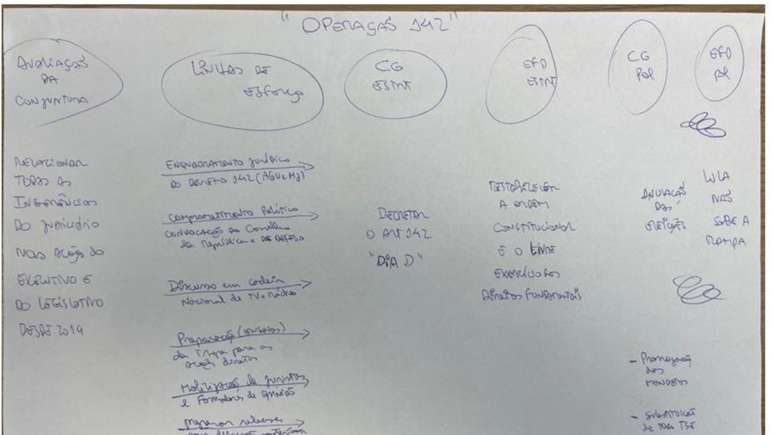 "OPERAÇÃO 142"
AVALIAÇÃO
DA
CONJUNTURA
LINHAS DE
ESFORÇO
CG
ESTRT
EFD
ESTRT
CG
POL
EFD
POL
RELACIONAR
TODAS AS
INGERÊNCIAS
DO JUDICIÁRIO
NAS AÇÕES DO
EXECUTIVO E
DO LEGISLATIVO
DESDE 2019
Enquadramento Jurídico
DO DECRETO 142 (AGU e MJ)
Comprometimento Político
CONVOCAÇÃO do Conselho
da República e DE DEFESA
Discurso em cadeia
Nacional de TV e Rádio
Preparação
da Tropa para as
ações diretas
Mobilização de juristas
e Formadores de opinião
DECRETAR
O ART 142
"DIA D"
RESTABELECER
A ORDEM
CONSTITUCIONAL
E O LIVRE
EXERCÍCIO DOS
DIREITOS FUNDAMENTAIS
ANULAÇÃO
DAS
ELEIÇÕES
LULA
NÃO
SOBE A
RAMPA
- Prorrogação
dos
MANDATOS
- SUBSTITUIÇÃO
DE TODO TSE